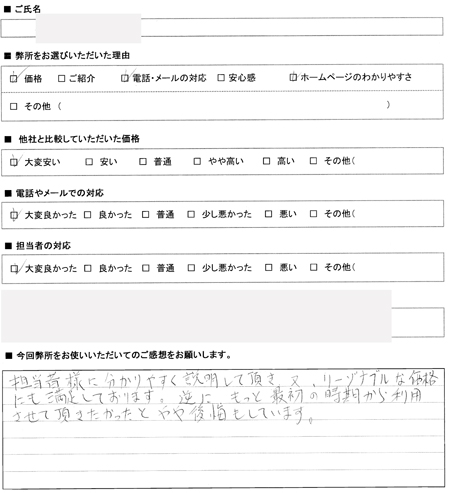 ■ ご氏名
■ 弊所をお選びいただいた理由
☑ 価格 □ ご紹介 ☑ 電話・メールの対応 □ 安心感 ☑ ホームページのわかりやすさ
□ その他 （ ）
■ 他社と比較していただいた価格
☑ 大変安い □ 安い □ 普通 □ やや高い □ 高い □ その他（
■ 電話やメールでの対応
☑ 大変良かった □ 良かった □ 普通 □ 少し悪かった □ 悪い □ その他（
■ 担当者の対応
☑ 大変良かった □ 良かった □ 普通 □ 少し悪かった □ 悪い □ その他（
■ 今回弊所をお使いいただいてのご感想をお願いします。
担当者様に分かりやすく説明して頂き、又、リーゾナブルな価格
にも満足しております。逆に、もっと最初の時期から利用
させて頂きたかったと やや後悔もしています。